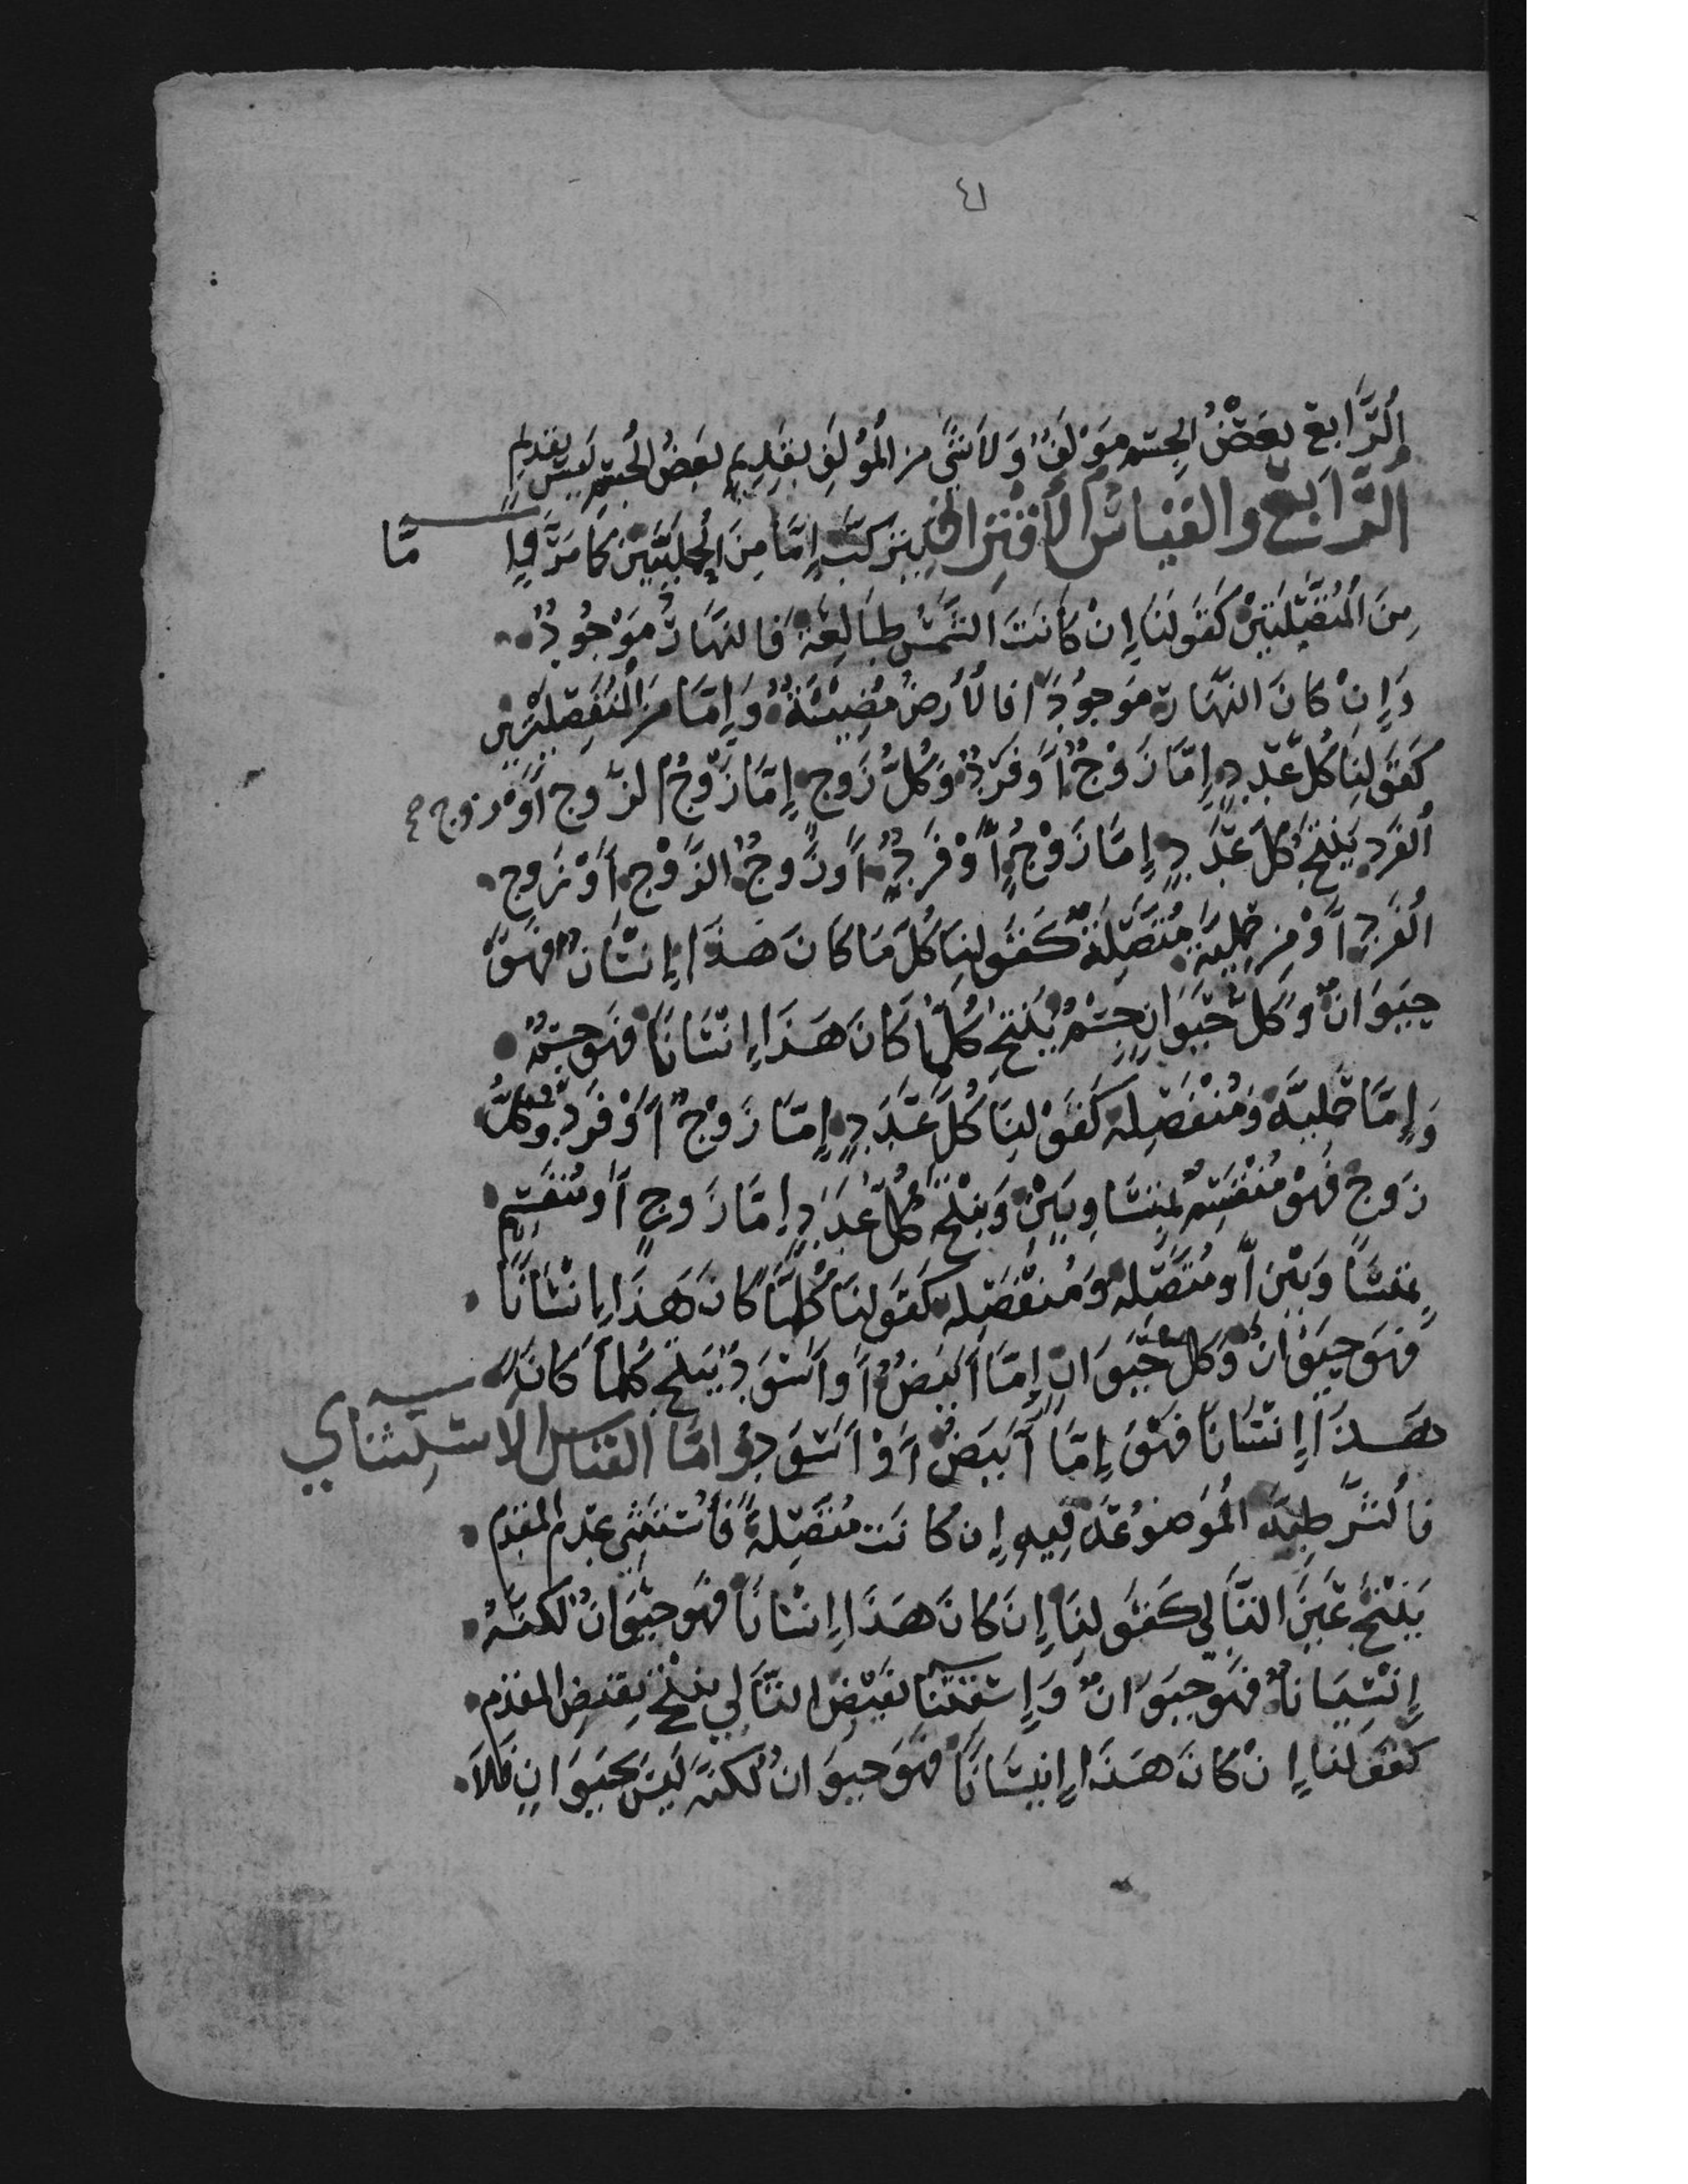 ٤١
الرابع بعض الجسم مؤلف ولا شيء من المؤلف بقديم بعض الجسم ليس بقديم
الرابع والقياس الاقتراني يتركب إما من الحمليتين كما مر وإما
من المتصلتين كقولنا إن كانت الشمس طالعة فالنهار موجود
وإن كان النهار موجودا فالأرض مضيئة وإما من المنفصلتين
كقولنا كل عدد إما زوج أو فرد وكل زوج إما زوج الزوج أو زوج
الفرد ينتج كل عدد إما زوج أو فرد أو زوج الزوج أو زوج
الفرد أو من حملية متصلة كقولنا كل ما كان هذا إنسان فهو
حيوان وكل حيوان جسم ينتج كلما كان هذا إنسانا فهو جسم
وإما حملية ومنفصلة كقولنا كل عدد إما زوج أو فرد وكل
زوج فهو منقسم بمتساويين وينتج كل عدد إما زوج أو منقسم
بمتساويين أو متصلة ومنفصلة كقولنا كلما كان هذا إنسانا
فهو حيوان وكل حيوان إما أبيض أو أسود ينتج كلما كان
هذا إنسانا فهو إما أبيض أو أسود وأما القياس الاستثناي
فالشرطية الموضوعة فيه إن كانت متصلة فاستثنى عدم المقدم
ينتج عين التالي كقولنا إن كان هذا إنسانا فهو حيوان لكنه
إنسيانا فهو حيوان وإستقتنا نقيض التالي ينتج نقيض المقدم
كقولنا إن كان هذا إنيسانا فهو حيوان لكنه ليس بحيوان فلا